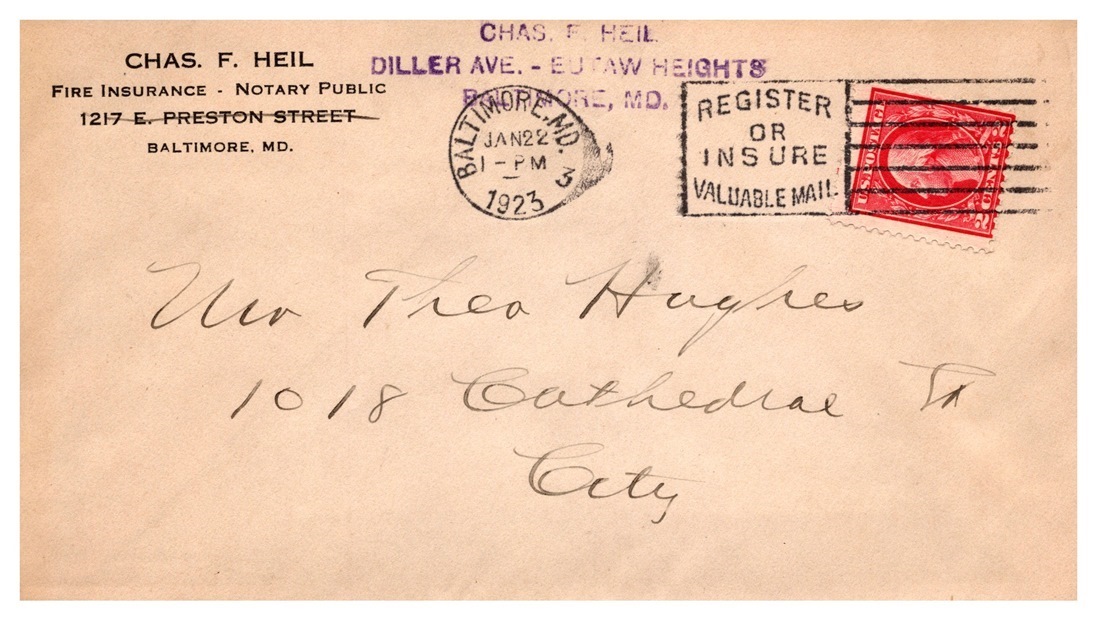 CHAS. F. HEIL
FIRE INSURANCE - NOTARY PUBLIC
1217 E. PRESTON STREET
BALTIMORE, MD.
CHAS. F. HEIL
DILLER AVE. - EUTAW HEIGHTS
BALTIMORE, MD.
BALTIMORE, MD.
JAN 22
1 - PM
1923
3
REGISTER
OR
INSURE
VALUABLE MAIL
U.S. POSTAGE
2 CENTS 2
Mr Theo Hughes
1018 Cathedral St
City